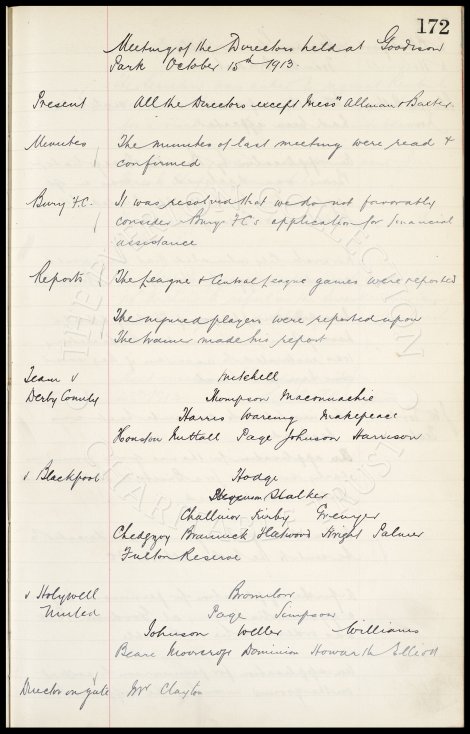 172
Meeting of the Directors held at Goodison
Park October 15th 1913.
Present All the Directors except Messrs Allman & Baxter.
Minutes The minutes of last meeting were read &
confirmed
Bury F.C. It was resolved that we do not favorably
consider Bury F.C's application for financial
assistance
Reports The League & Central League games were reported
The injured players were reported upon
The trainer made his report
Team v Mitchell
Derby County Thompson Maconnachie
Harris Wareing Makepeace
Houston Nuttall Page Johnson Harrison
v Blackpool Hodge
Stevenson Stalker
Challinor Kirby Grenyer
Chedgzoy Brannick Wright Palmer
Fulton Reserve
v Holywell Bromilow
United Page Simpson
Johnson Weller Williams
Beare Moorcroft Dominion Howarth Elliott
Director on gate Mr Clayton
THE EVERTON COLLECTION
CHARITABLE TRUST